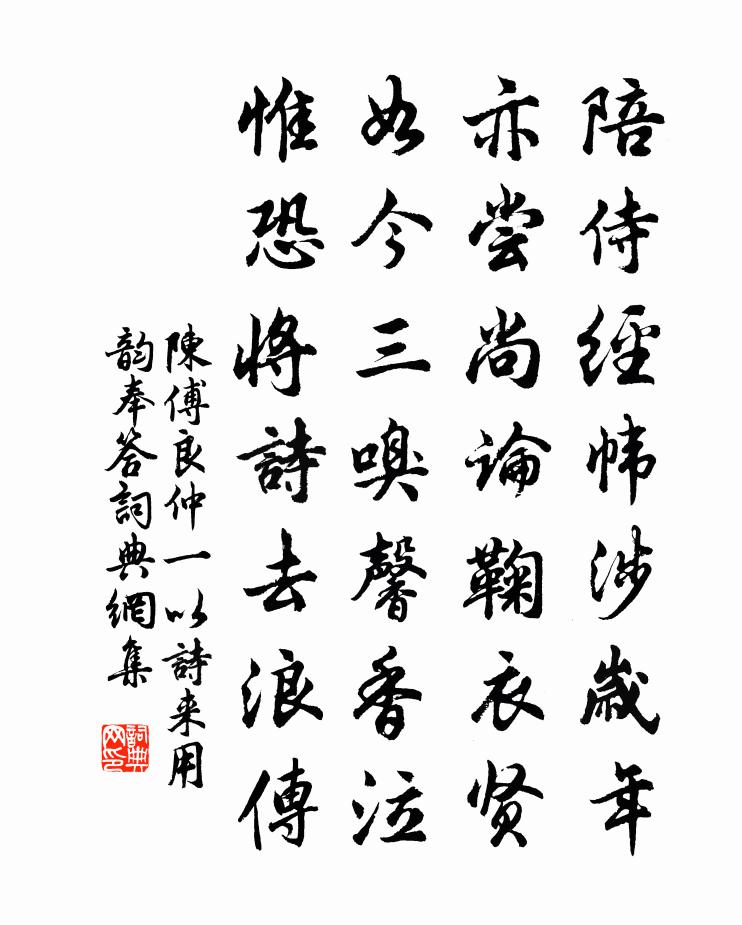 陪侍經幃涉歲年
亦尝尚論鞠衣贤
如今三嗅馨香泣
惟恐将詩去浪傳
陳傅良仲一以詩来用
韵奉答詞典網集
詞典网印